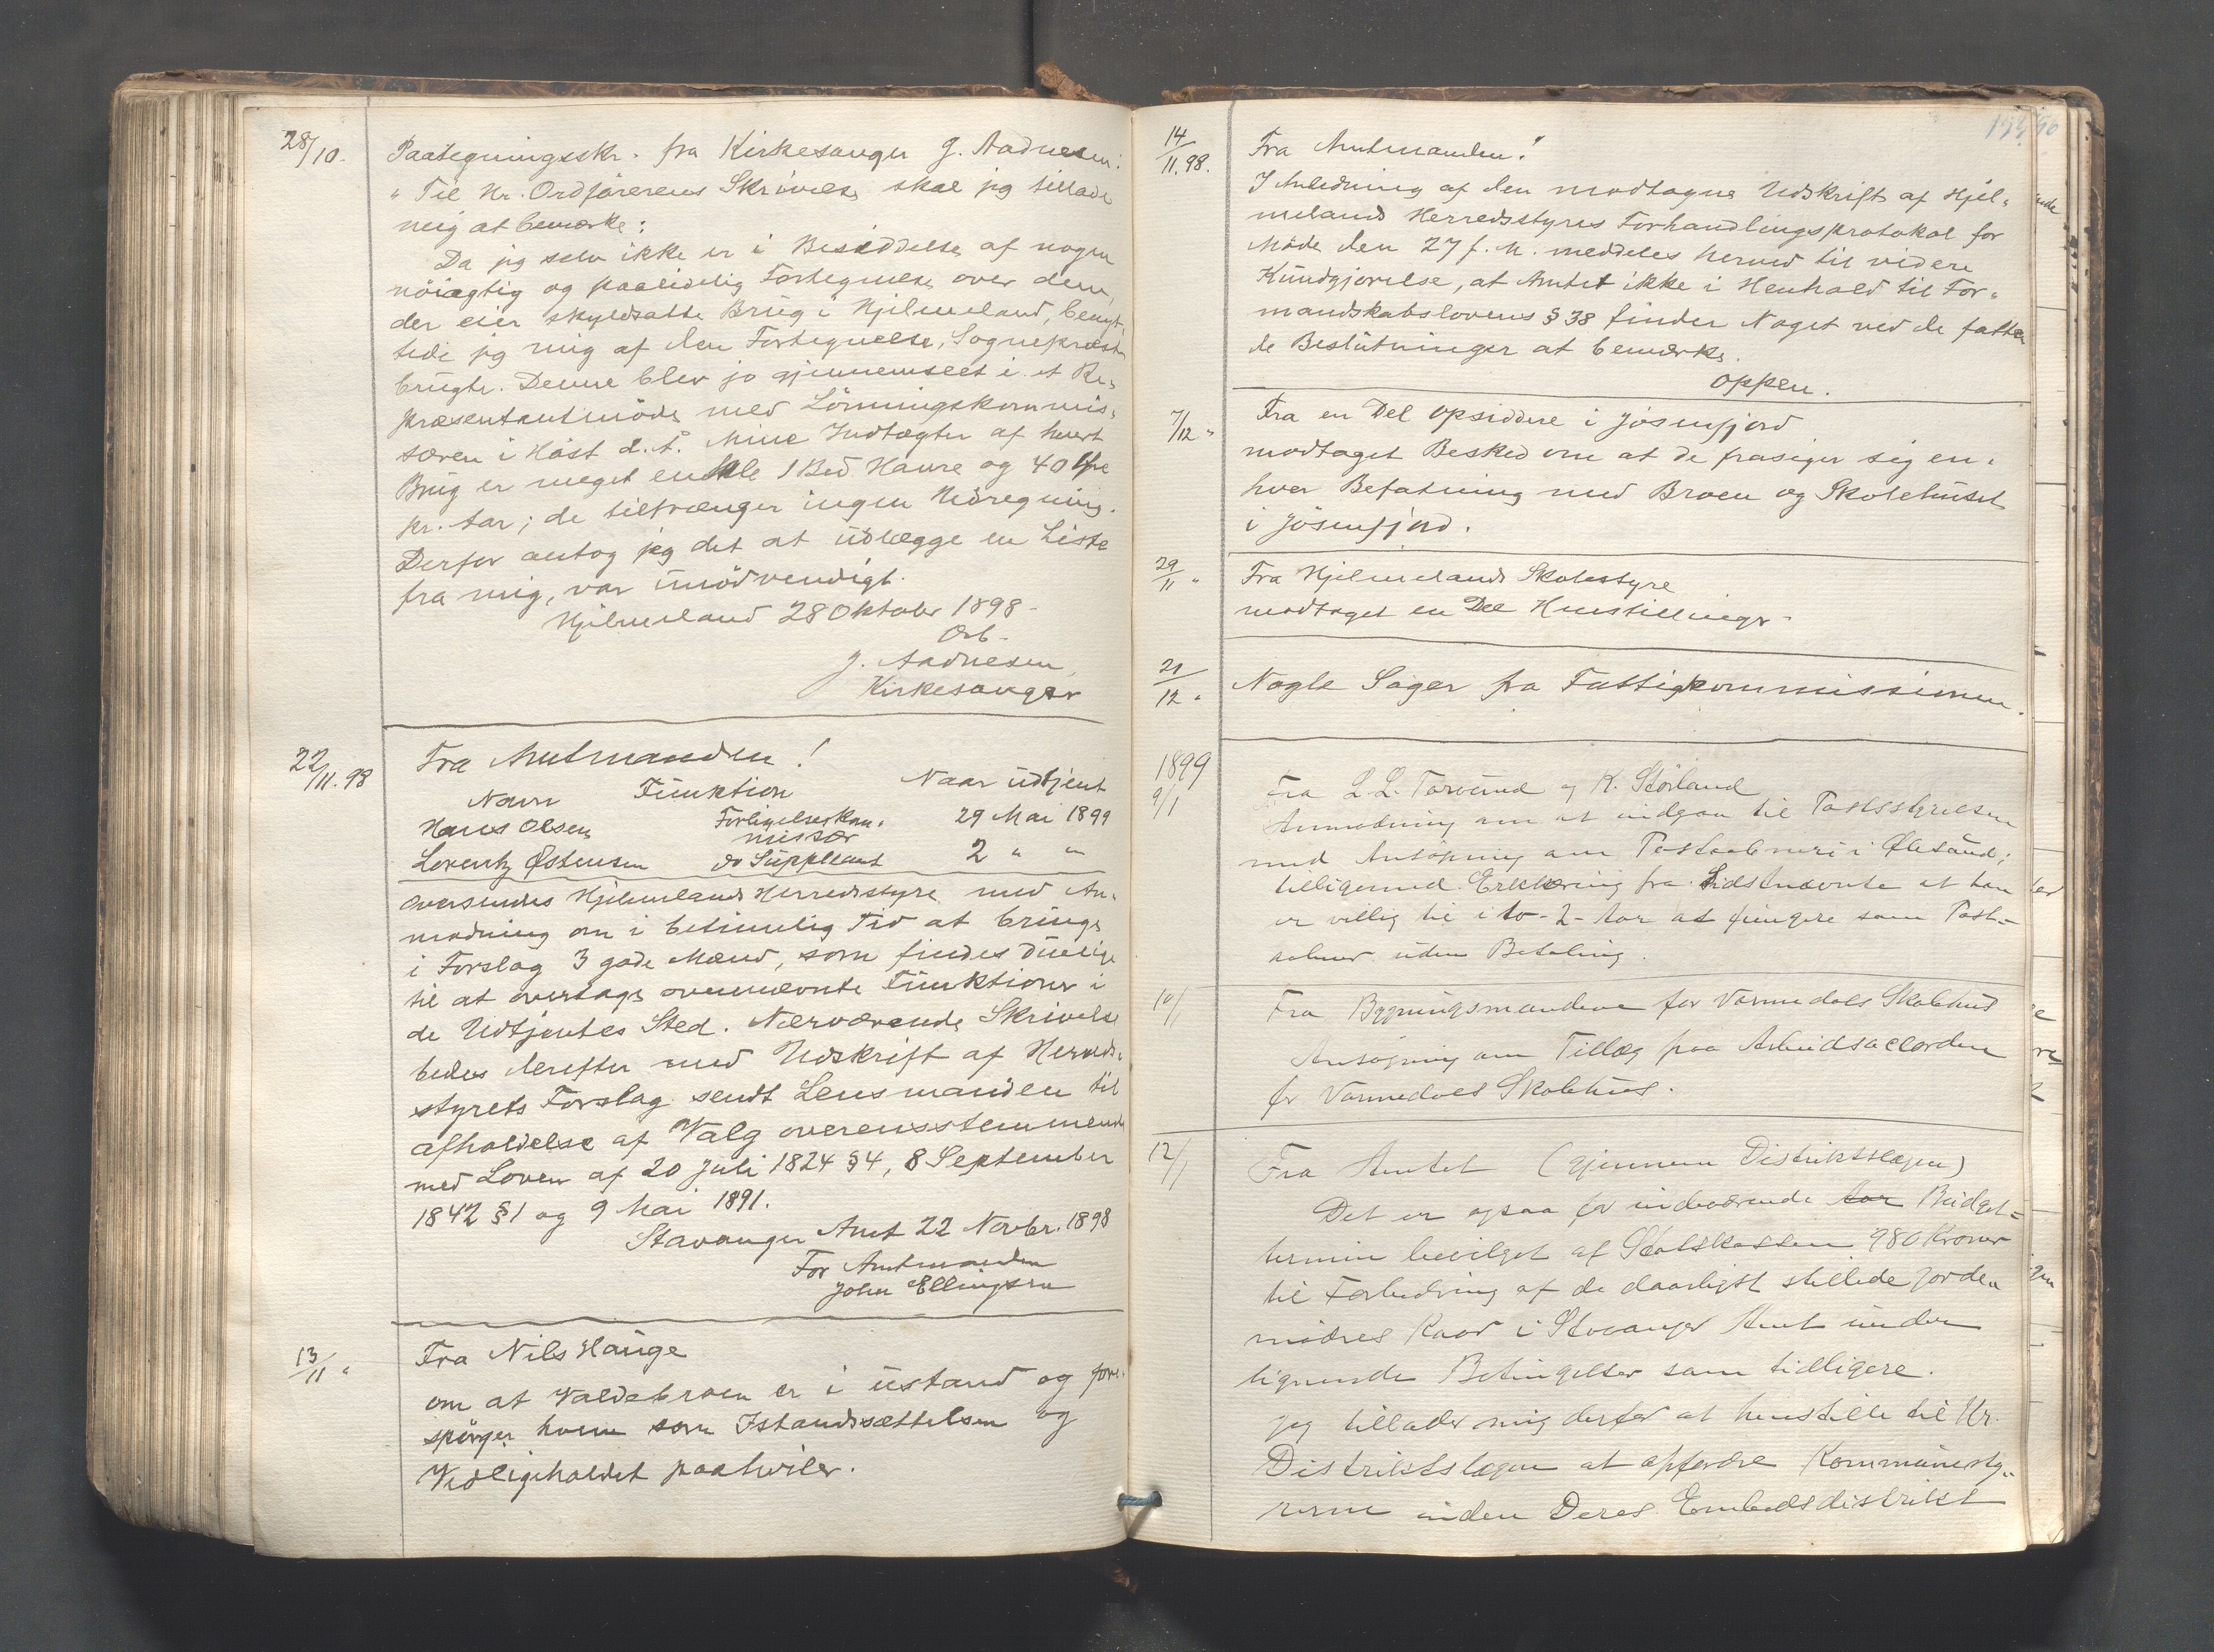 28/10.
Paategningsskr. fra Kirkesanger G. Aadnesen:
„ Til Hr. Ordförerens Skrivelse skal jeg tillade
mig at bemærke:
Da jeg selv ikke er i Besiddelse af nogen
nöiagtig og paalidelig Fortegnelse over dem,
der eier skyldsatte Brug i Hjelmeland, benyt-
tede jeg mig af den Fortegnelse, Sognepræsten
brugte. Denne blev jo gjennemseet i et Re-
præsentantmöde med Lönningskommis-
særen i Höst d. A. Mine Indtægter af hvert
Brug er meget enkle 1 Bed Havre og 40 Øre
pr. Aar; de tiltrænger ingen Udregning.
Derfor antog jeg det at udlægge en Liste
fra mig, var unödvendigt.
Hjelmeland 28 Oktober 1898.
Ærb.
G. Aadnesen
Kirkesanger
22/11.98
Fra Amtmanden!
Navn Funktion Naar udtjent
Hans Olsen Forligelseskom- 29 Mai 1899
missær
Lorentz Østensen do Suppleant 2 " "
oversendes Hjelmelands Herredsstyre med An-
modning om i betimelig Tid at bringe
i Forslag 3 gode Mænd, som findes duelige
til at overtage ovennævnte Funktioner i
de Udtjentes Sted. Nærværende Skrivelse
bedes derefter med Udskrift af Herreds-
styrets Forslag sendt Lensmanden til
afholdelse af Valg overensstemmende
med Loven af 20 Juli 1824 § 4, 8 September
1842 § 1 og 9 Mai 1891.
Stavanger Amt 22 Novbr. 1898
For Amtmanden
John Ellingsen
13/11 "
Fra Nils Hauge
om at Valdebroen er i ustand og fore-
spörger hvem som Istandsættelsen og
Vedligeholdet paahviler.
14/11.98.
Fra Amtmanden!
I Anledning af den modtagne Udskrift af Hjel-
melands Herredsstyres Forhandlingsprotokol for
Möde den 27 f. M. meddeles herved til videre
Kundgjörelse, at Amtet ikke i Henhold til For-
mandskabslovens § 38 finder Noget ved de fatte-
de Beslutninger at bemærke.
Oppen.
7/12 "
Fra en Del Opsiddere i Jösenfjord
modtaget Besked om at de frasiger sig en-
hver Befatning med Broen og Skolehuset
i Jösenfjord.
29/11 "
Fra Hjelmelands Skolestyre
modtaget en Del Henstillinger.
21/12 "
Nogle Sager fra Fattigkommissionen.
1899
9/1
Fra L. L. Tarvund og K. Störland
Anmodning om at indgaa til Poststyrelsen
med Ansögning om Postaabneri i Ølesund;
tilligemed Erklæring fra Sidstnævnte at han
er villig til i to - 2 - Aar at fungere som Post-
aabner uden Betaling.
10/1
Fra Bygningsmændene for Vormedals Skolehus
Ansögning om Tillæg paa Arbeidsaccorden
for Vormedals Skolehus.
12/1
Fra Amtet (gjennem Distriktslægen)
Det er ogsaa for indeværende Aar Budget-
termin bevilget af Statskassen 980 Kroner
til Forbedring af de daarligst stillede Jorde-
mödres Kaar i Stavanger Amt under
lignende Betingelser som tidligere.
Jeg tillader mig derfor at henstille til Hr.
Distriktslægen at opfordre Kommunesty-
rerne inden Deres Embedsdistrikt